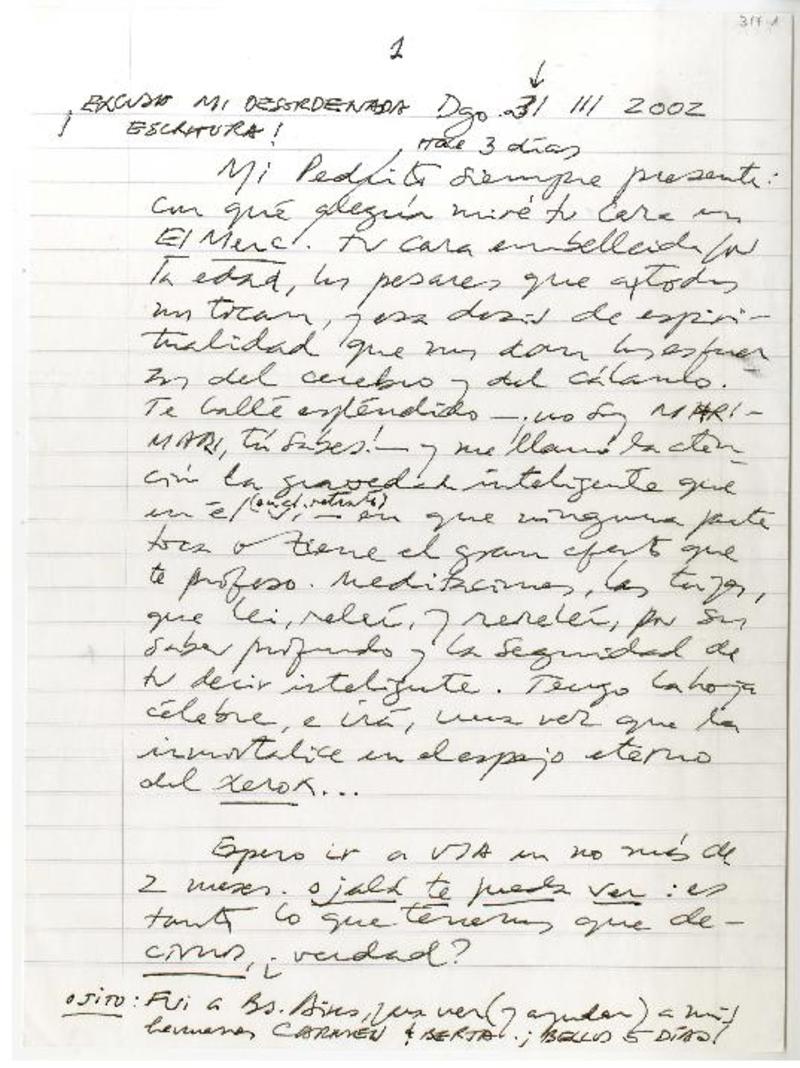 317-1
1
¡EXCUSA MI DESORDENADA Dgo. 31 III 2002
ESCRITURA!
Hace 3 días
Mi Pedrito siempre presente:
con qué alegría miré tu cara en
El Merc. tu cara embellecida por
la edad, los pesares que a todos
nos tocan, y esa dosis de espiri-
tualidad que nos dan los esfuer
zos del cerebro y del cálamo.
Te hallé espléndido —¡no soy MARI-
MARI, tú sabes!— y me llamó la aten-
ción la gravedad inteligente que
en él (en el retrato) vi — en que ninguna parte
toca o tiene el gran afecto que
te profeso. Meditaciones, las tuyas,
que leí, releí, y rereleí, por su
saber profundo y la seguridad de
tu decir inteligente. Tengo la hoja
célebre, e irá, una vez que la
inmortalice en el espejo eterno
del xerox...
Espero ir a VSA en no más de
2 meses. ojalá te pueda ver: es
tanto lo que tenemos que de-
cirnos, ¿verdad?
OJITO: Fui a Bs. Aires, para ver (y ayudar) a mis
hermanas CARMEN & BERTA. ¡BELLOS 5 DÍAS!